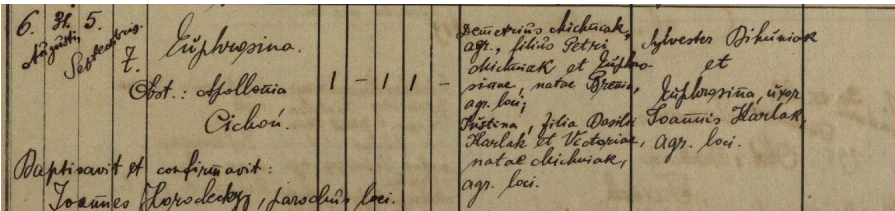 6. 31. 5.
Augusti, Septembris.
7.
Euphrosina.
Obst.: Apollonia
Cichoń.
1 - 1 1 -
Demetrius Michniak,
agr., filius Petri
Michniak et Euphro-
sinae, natae Brenia,
agr. loci;
Justina, filia Basilii
Harlak et Victoriae,
natae Michniak,
agr. loci.
Sylvester Dikuniak
et
Euphrosina, uxor
Joannis Harlak,
agr. loci.
Baptisavit et confirmavit:
Joannes Horodeckyj, parochus loci.